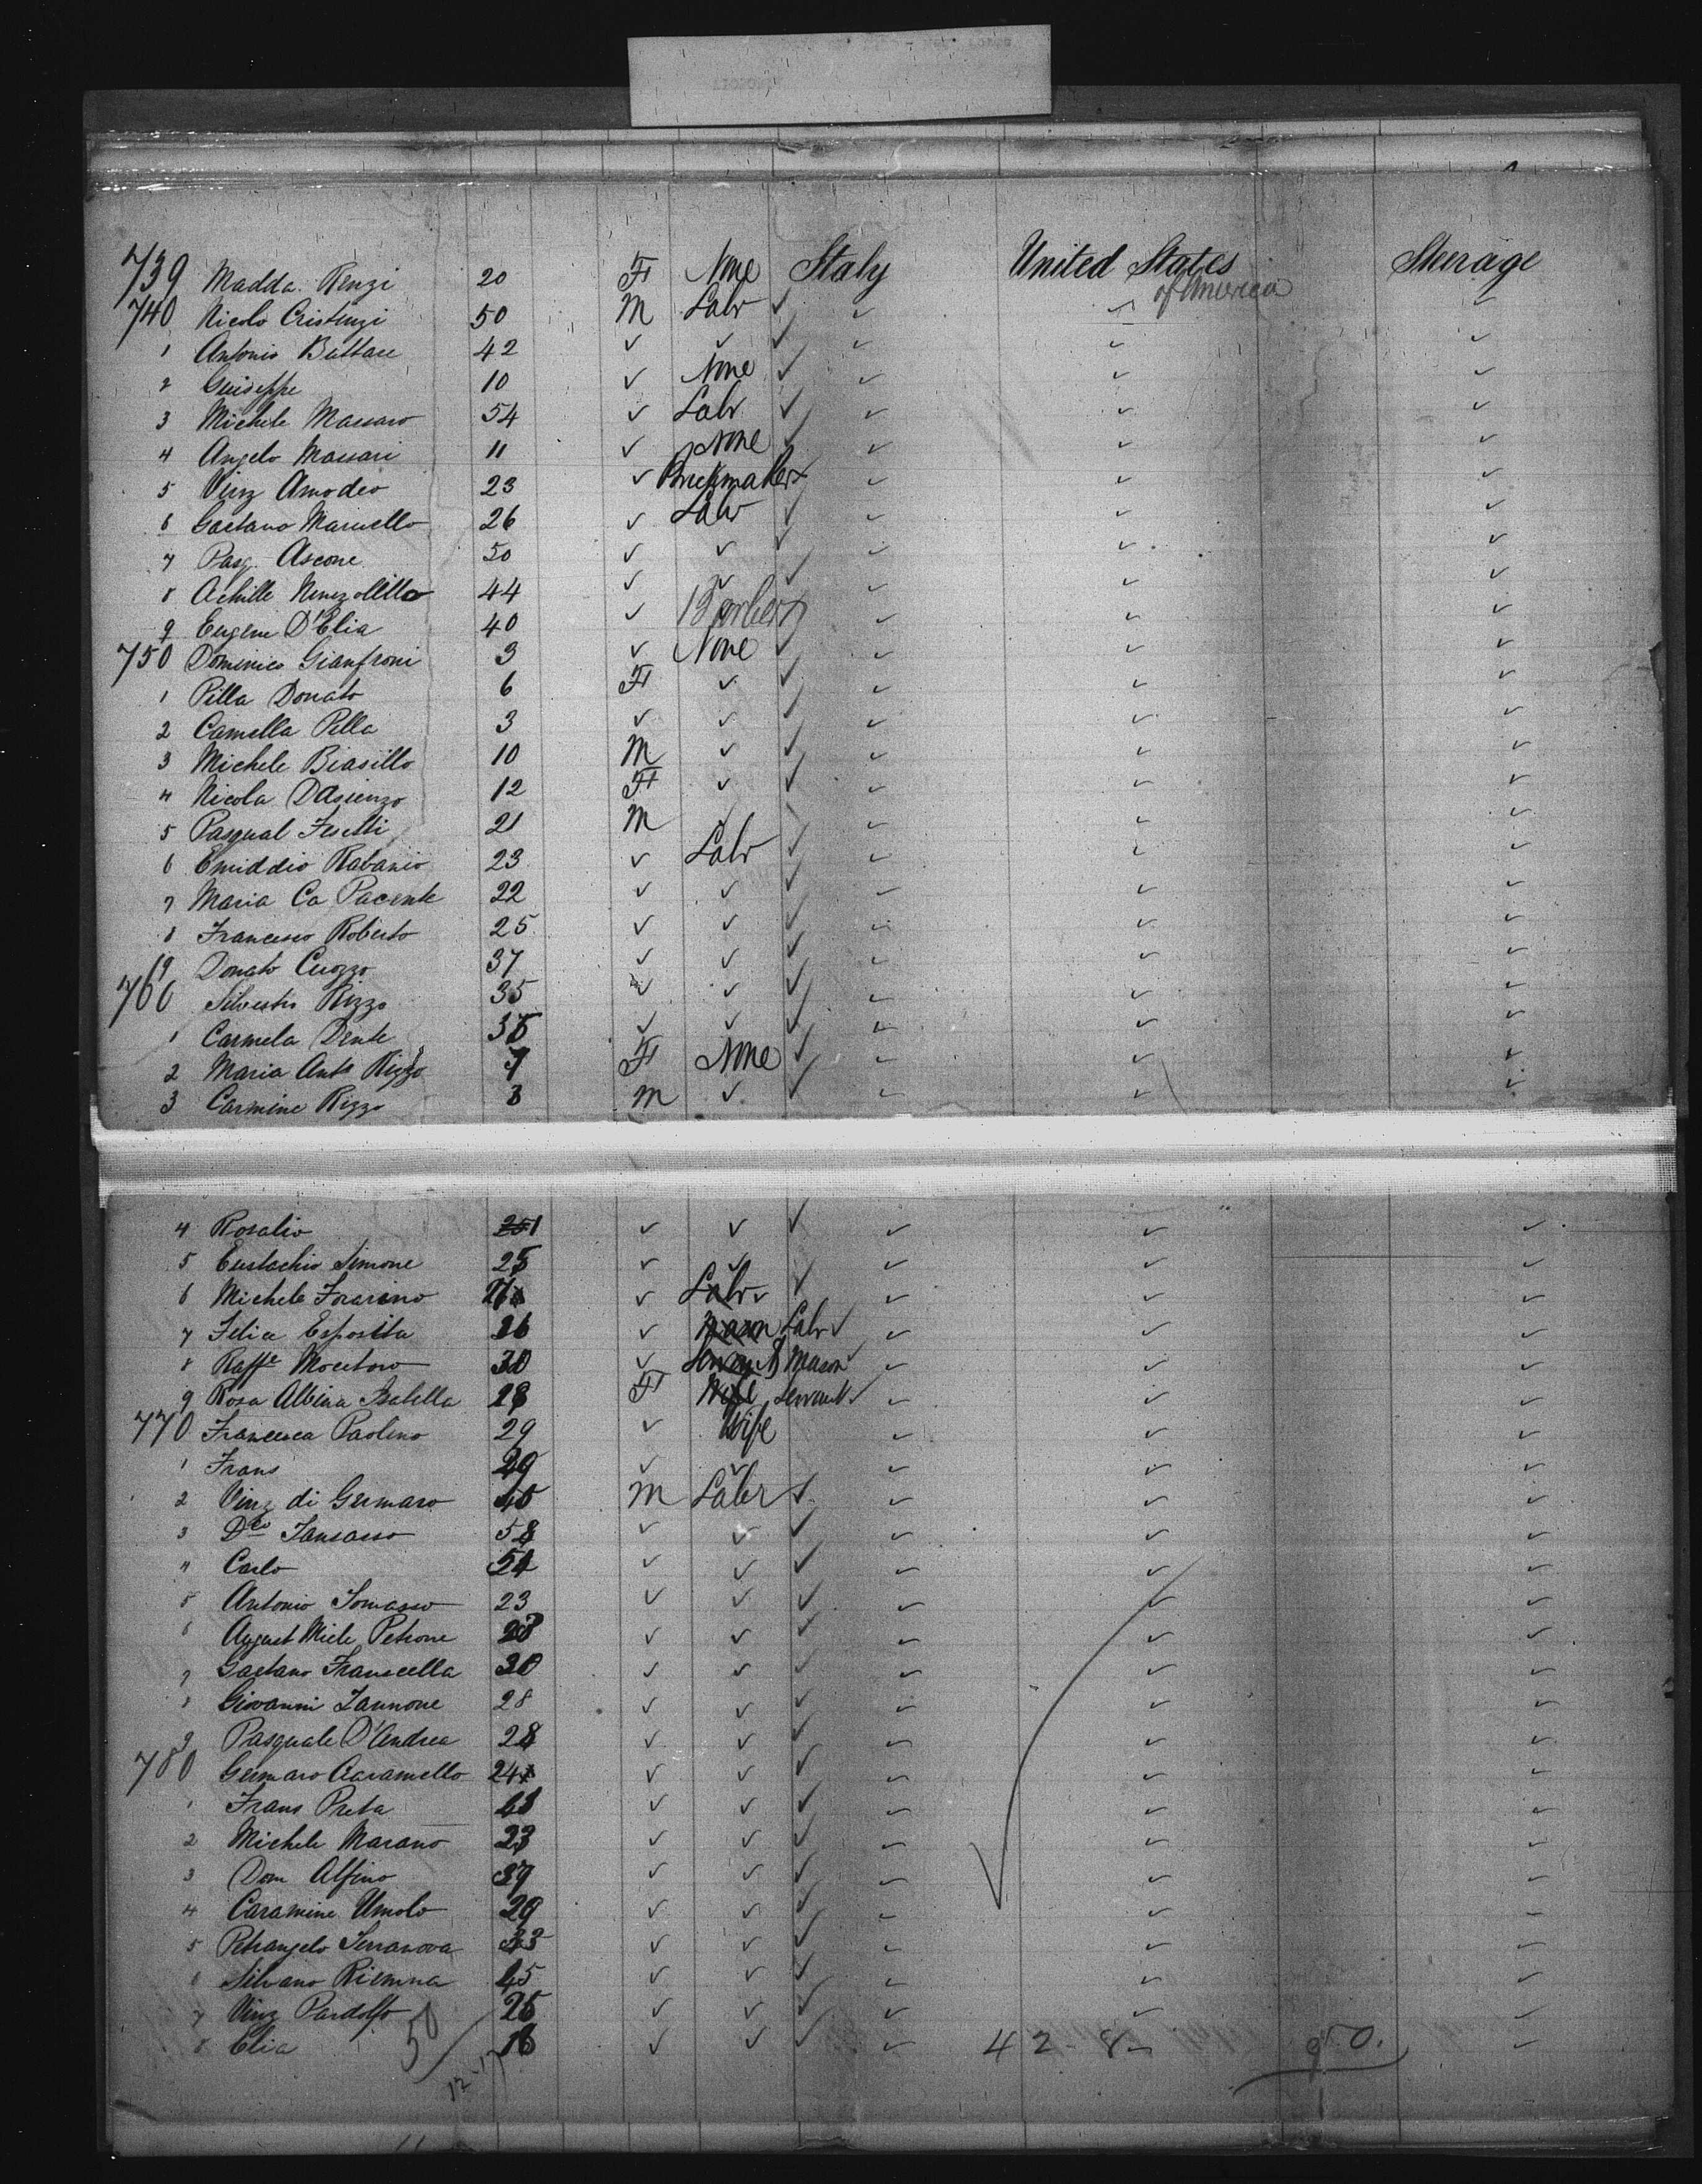 739 Madda. Renzi 20 F None Italy United States of America Steerage
740 Nicolo Cristinzi 50 M Labr ✓ ✓ ✓ ✓
1 Antonio Buttare 42 ✓ ✓ ✓ ✓ ✓ ✓
2 Guiseppe 10 ✓ None ✓ ✓ ✓ ✓
3 Michele Massaro 54 ✓ Labr ✓ ✓ ✓ ✓
4 Angelo Massari 11 ✓ None ✓ ✓ ✓ ✓
5 Vinz Amodeo 23 ✓ Brickmaker x ✓ ✓ ✓
6 Gaetano Maruello 26 ✓ Labr ✓ ✓ ✓ ✓
7 Pasq. Ascone 50 ✓ ✓ ✓ ✓ ✓ ✓
8 Achille 44 ✓ ✓ ✓ ✓ ✓ ✓
9 Eugene D'Elia 40 ✓ Barber x ✓ ✓ ✓
750 Dominico Gianfroni 3 ✓ None ✓ ✓ ✓ ✓
1 Pilla Donato 6 F ✓ ✓ ✓ ✓ ✓
2 Camella Pella 3 ✓ ✓ ✓ ✓ ✓ ✓
3 Michele Biasillo 10 M ✓ ✓ ✓ ✓ ✓
4 Nicola D'Asienzo 12 F ✓ ✓ ✓ ✓ ✓
5 Pasqual Feselli 21 M ✓ ✓ ✓ ✓
6 Emiddio Rabanio 23 ✓ Labr ✓ ✓ ✓ ✓
7 Maria Ca Pacente 22 ✓ ✓ ✓ ✓ ✓ ✓
8 Francesco Roberto 25 ✓ ✓ ✓ ✓ ✓ ✓
9 Donato Cuozzo 37 ✓ ✓ ✓ ✓ ✓ ✓
760 Silvestro Rizzo 35 ✓ ✓ ✓ ✓ ✓ ✓
1 Carmela Dente ✓ ✓ ✓ ✓ ✓ ✓
2 Maria Anta Rizzo 7 F None ✓ ✓ ✓ ✓
3 Carmine Rizzo 3 M ✓ ✓ ✓ ✓ ✓
4 Rosalio 1 ✓ ✓ ✓ ✓ ✓ ✓
5 Eustachio Simone 25 ✓ ✓ ✓ ✓ ✓
6 Michele Forarino ✓ Labr ✓ ✓ ✓ ✓ ✓
7 Felice Esposita 26 ✓ Mason Labr ✓ ✓ ✓ ✓
8 Raffe Mocctoro 30 ✓ Servant Mason ✓ ✓ ✓ ✓
9 Rosa Albina Isabella 28 F Wife Servant ✓ ✓ ✓ ✓
770 Francesca Paolino 29 ✓ Wife ✓ ✓ ✓
1 Frans ✓ ✓ ✓ ✓ ✓
2 Vinz di Germaro M Labr ✓ ✓ ✓ ✓
3 Dco Tansasso 58 ✓ ✓ ✓ ✓ ✓ ✓
4 Carlo ✓ ✓ ✓ ✓ ✓ ✓
5 Antonio Tomasso 23 ✓ ✓ ✓ ✓ ✓ ✓
6 August Miele Petrone ✓ ✓ ✓ ✓ ✓ ✓
7 Gaetano Francella 30 ✓ ✓ ✓ ✓ ✓ ✓
8 Giovanni Iannone 28 ✓ ✓ ✓ ✓ ✓ ✓
9 Pasquale D'Andrea 28 ✓ ✓ ✓ ✓ ✓ ✓
780 Germaro Caramello 24 ✓ ✓ ✓ ✓ ✓ ✓
1 Frans Preta ✓ ✓ ✓ ✓ ✓ ✓
2 Michele Marano 23 ✓ ✓ ✓ ✓ ✓ ✓
3 Dom Alfino 39 ✓ ✓ ✓ ✓ ✓ ✓
4 Caramine Umolo 29 ✓ ✓ ✓ ✓ ✓ ✓
5 Petrangelo Terranova 33 ✓ ✓ ✓ ✓ ✓ ✓
6 Silvano Riemma 45 ✓ ✓ ✓ ✓ ✓ ✓
7 Vinz Pardolfo 25 ✓ ✓ ✓ ✓ ✓ ✓
8 Elia ✓ ✓ ✓ ✓ ✓
50 12-17 42-8- 950.